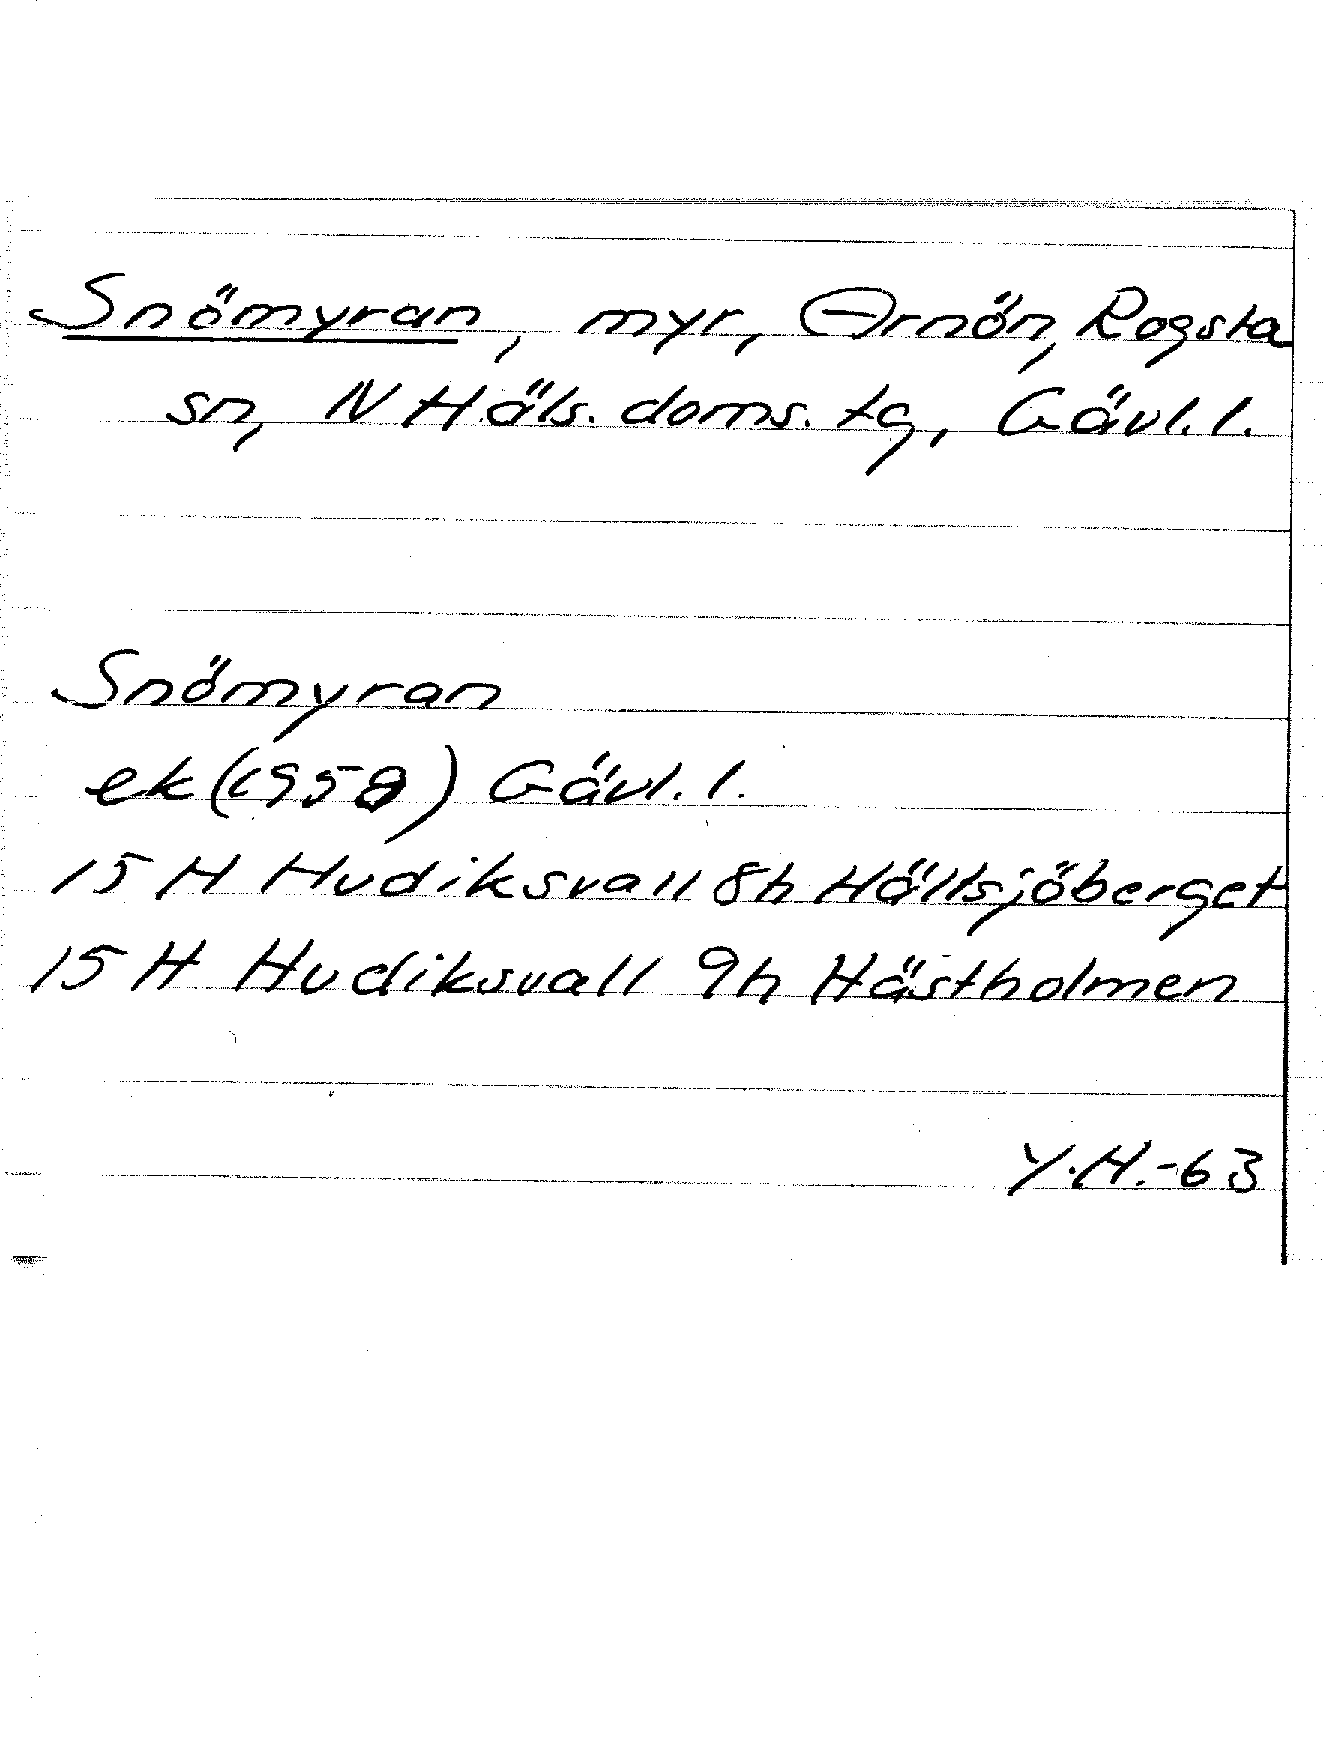 Snömyran, myr, Arnön, Rogsta
sn, N Häls. doms. tg, Gävl. l.
Snömyran
ek (1958) Gävl. l.
15 H Hudiksvall 8h Hällsjöberget
15 H Hudiksvall 9h Hästholmen
Y.H.-63